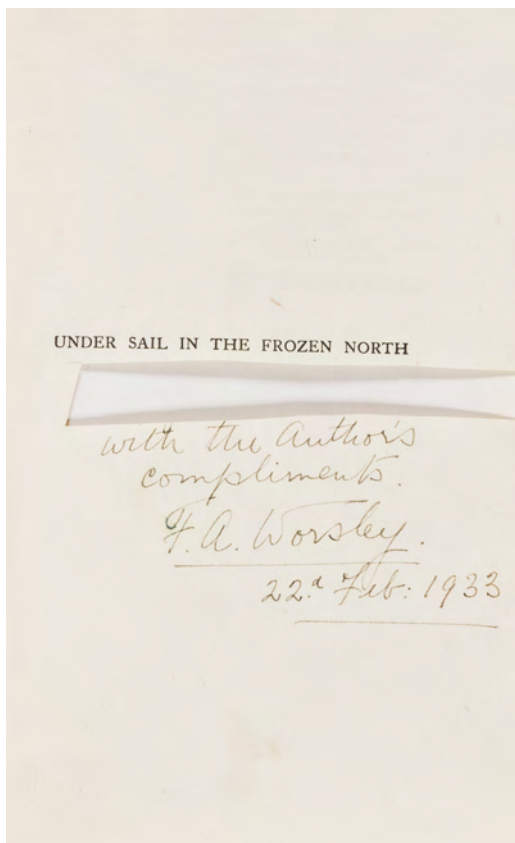 UNDER SAIL IN THE FROZEN NORTH
with the Author's
compliments.
F. A. Worsley.
22.d Feb: 1933